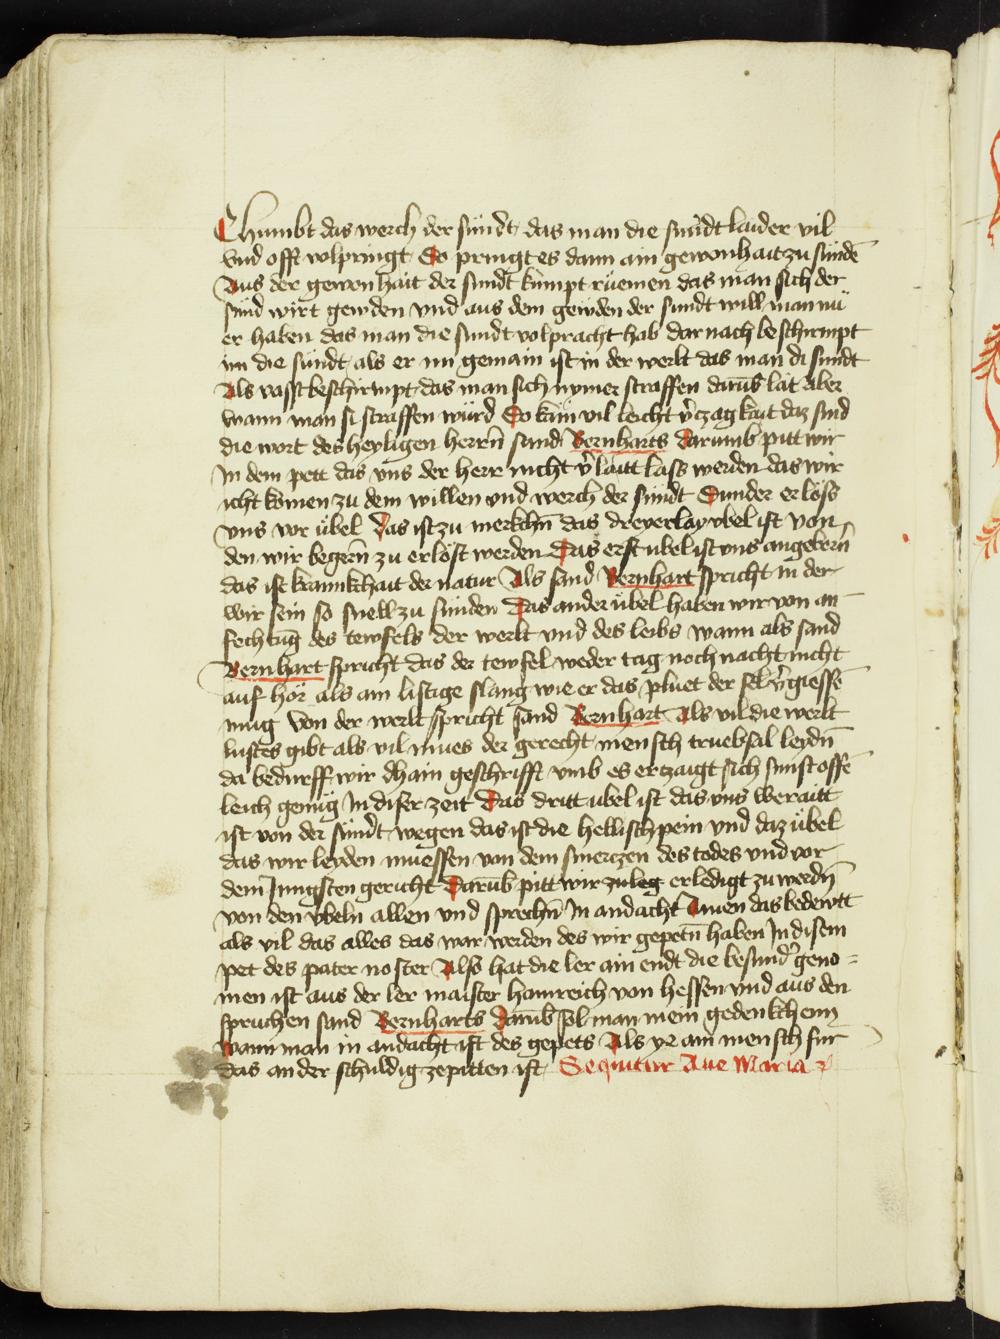 Chumbt das werch der sündt das man die sündt laider vil
vnd offt volpringt So pringt es dann ain gewonhait zu sündē
Aus der gewonhait der sündt kumpt rüemen das man sich der
sünd wirt gewden vnd aus dem gewden der sundt will man nu
er haben das man die sundt volpracht hab dar nach beschirmpt
im die sündt als er nu gemain ist in der werlt das man di sundt
Als vasst beschirmpt das man sich nymer straffen darūb lat aber
wann man si straffen würd So kām vil leicht v̄czagkait daz sind
die wort des heyligen herrn̄ sand Bernharts Darumb pitt wir
In dem pett das vns der herr nicht v̄laitt lass werden das wir
icht komen zu dem willen vnd werch der sündt Sunder erlöss
vns vor übel Das ist zu merkchn̄ das dreyerlay vbel ist von
den wir begern̄ zu erlöst werden Das erst ubel ist vns angeborn̄
das ist krannkhait der natur Als sand Bernhart spricht in der
wir sein so snell zu sünden Das ander übel haben wir von an
fechtūg des tewfels der werlt vnd des leibs wann als sand
Bernhart spricht das der tewfel weder tag noch nacht nicht
auf hör als ain listige slang wie er das pluet der sel v̄giessē
mug Von der werlt spricht sand Bernhart Als vil die werlt
lustes gibt als vil mues der gerecht mensch truebsal leydn̄
da bedurff wir dhain geschrifft vmb es erczaigt sich sunst offē
leich genüg In diser zeit Das dritt ubel ist das vns beraitt
ist von der sündt wegen das ist die hellisch pein vnd daz übel
das wir leyden muessen von dem smerczen des todes vnd vor
dem Jungsten gericht Darūb pitt wir zuleg erledigt zu werdn̄
von den vbeln allen vnd sprechn̄ In andacht Amen das bedewtt
als vil das alles das war werden des wir gepetn̄ haben In disem
pet des pater noster Also hat die ler ain endt die besund̄ geno=
men ist aus der ler maister hainreich von hessen vnd aus den
spruchen sand Bernharts Darūb sol man mein gedenkchenn
Wann man in andacht ist des gepets Als ye ain mensch fur
das ander schuldig ze pitten ist Sequitur Aue Maria